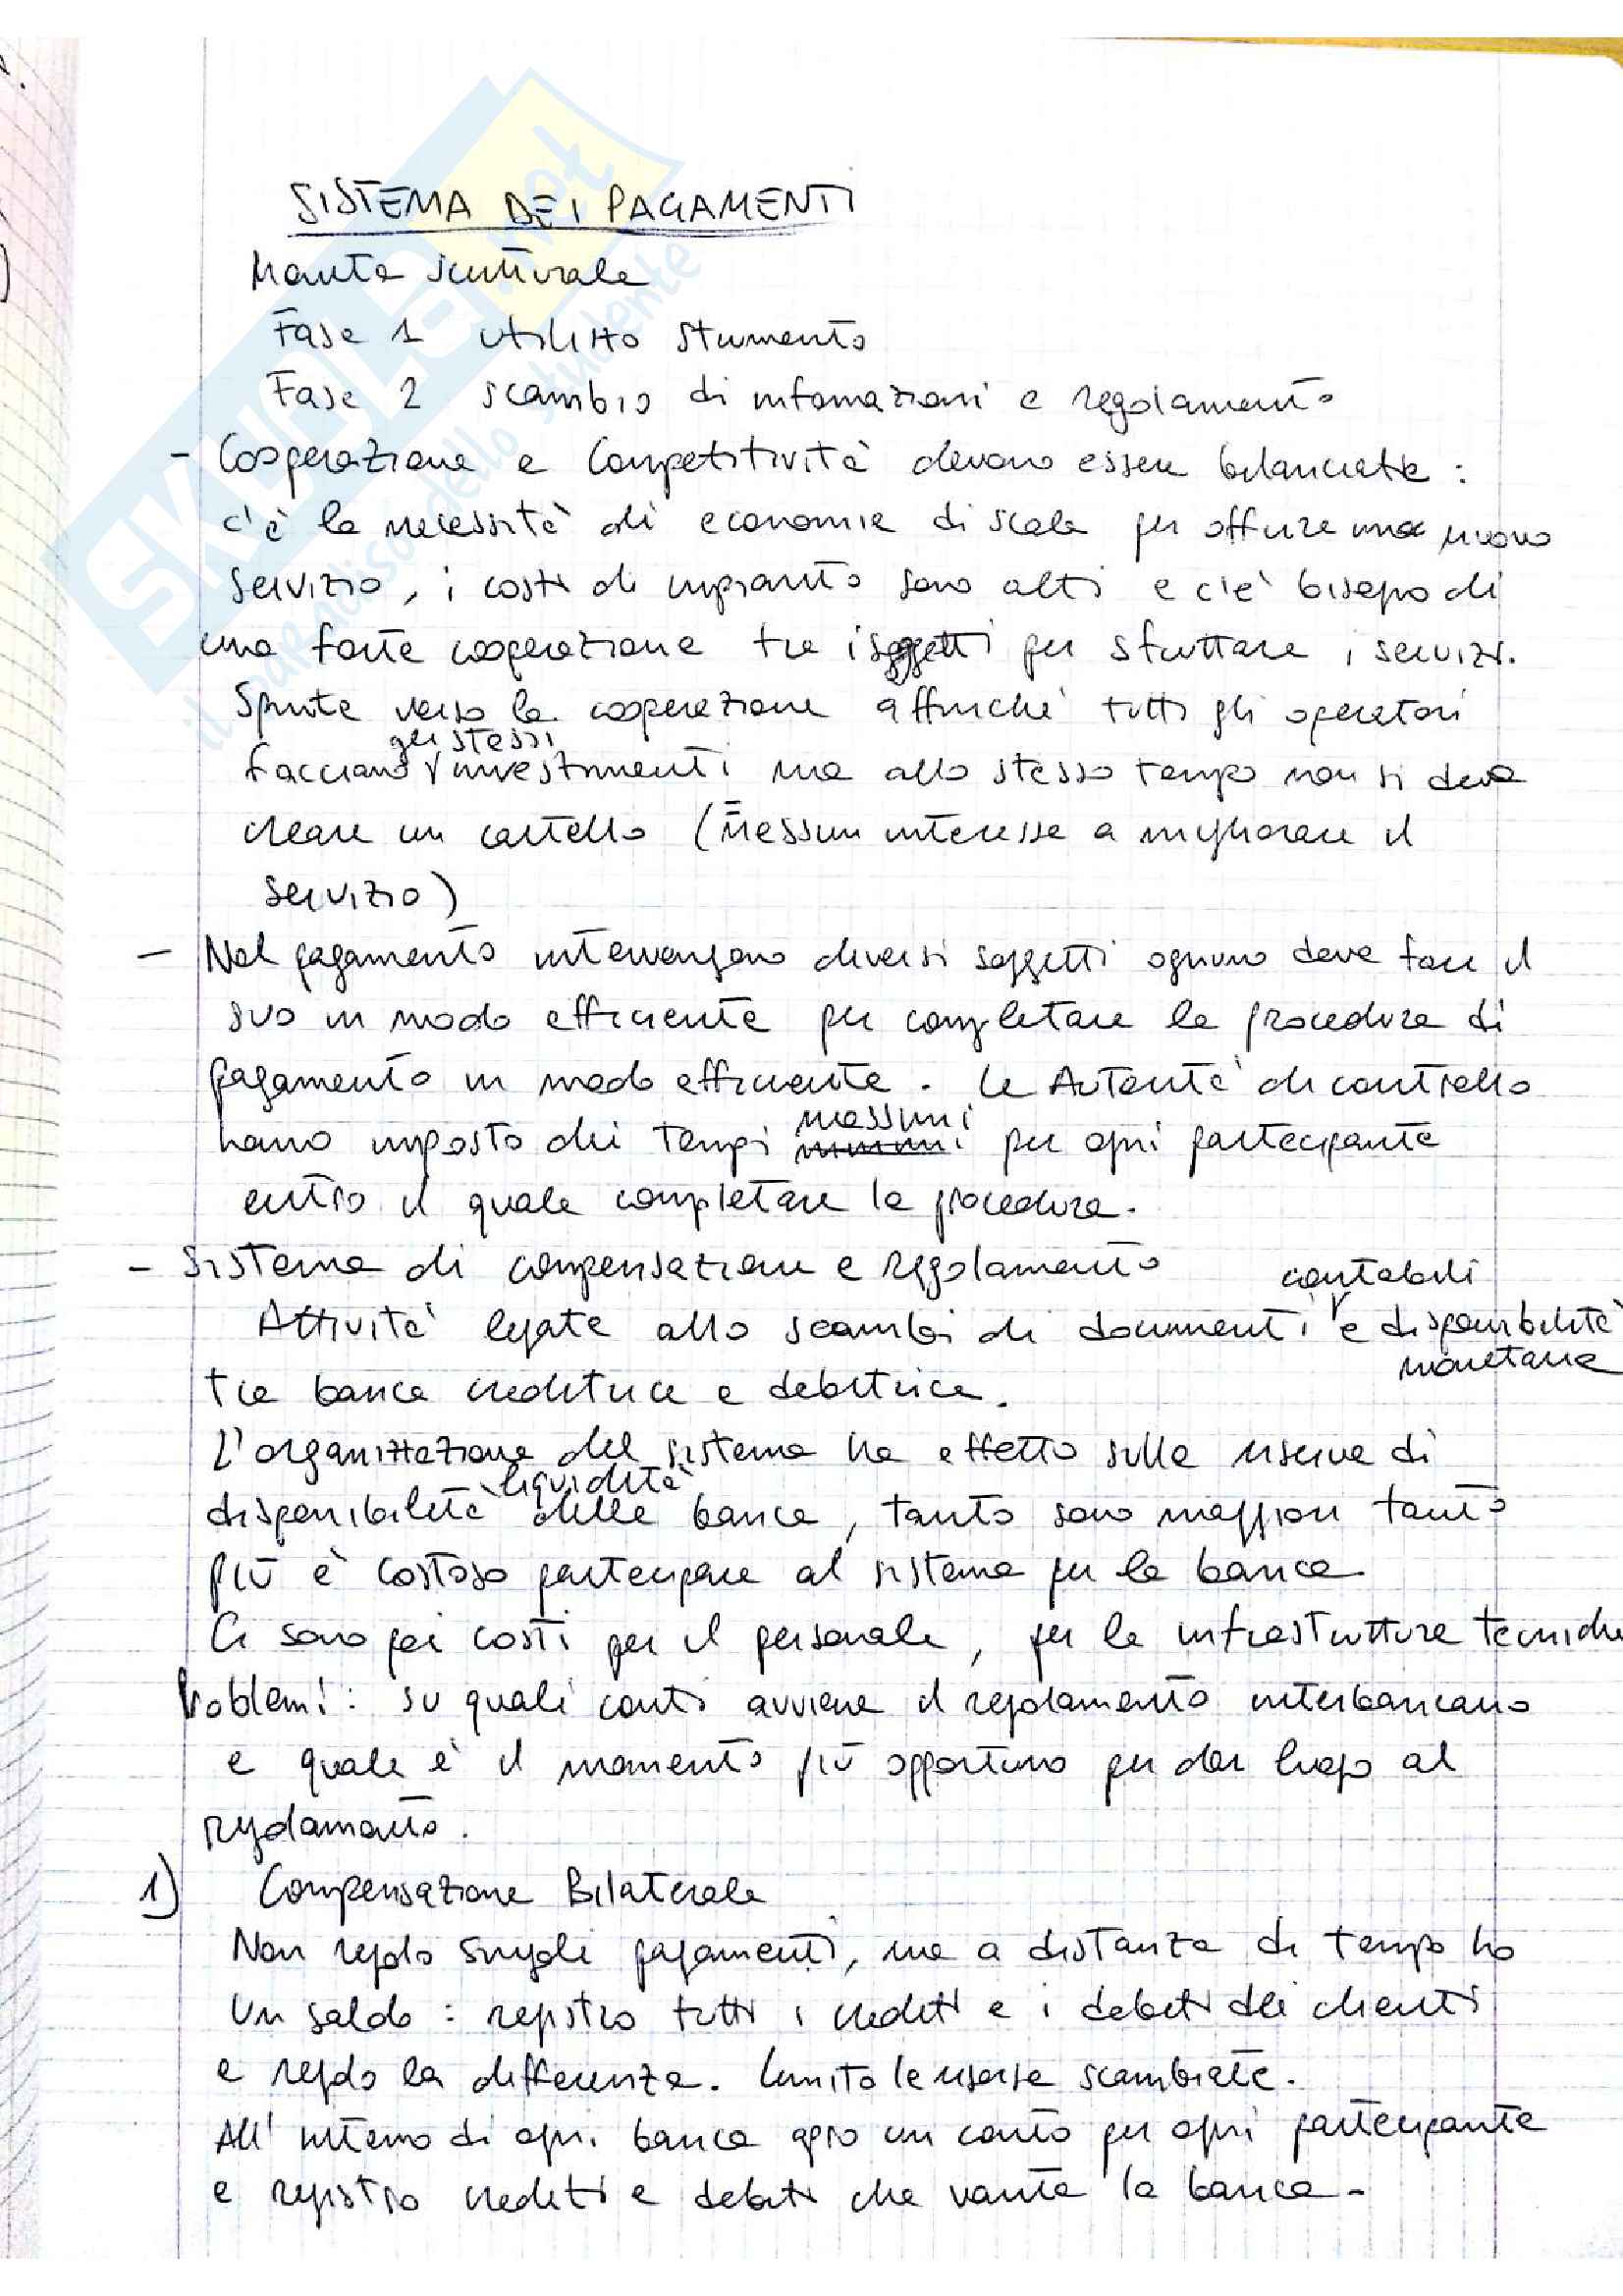 SISTEMA DEI PAGAMENTI
Fase 1 utilizzo strumento
Fase 2 scambio di informazioni e regolamento
- Cooperazione e Competitività devono essere bilanciate :
c'è la necessità di economie di scala per offrire una nuovo
servizio, i costi di impianto sono alti e c'è bisogno di
una forte cooperazione tra i soggetti per sfruttare i servizi.
Spinte verso la cooperazione affinchè tutti gli operatori
facciano gli stessi investimenti ma allo stesso tempo non si deve
creare un cartello (nessun interesse a migliorare il
servizio)
- Nel pagamento intervengono diversi soggetti ognuno deve fare il
suo in modo efficiente per completare la procedura di
pagamento in modo efficiente. Le Autorità di controllo
hanno imposto dei tempi massimi per ogni partecipante
entro il quale completare la procedura.
- Sistema di compensazione e regolamento
Attività legate allo scambi di documenti contabili e disponibilità monetarie
tra banca creditrice e debitrice.
L'organizzazione del sistema ha effetto sulle riserve di
disponibilità liquidità delle banca, tanto sono maggiori tanto
più è costoso partecipare al sistema per la banca
Ci sono poi costi per il personale, per le infrastrutture tecniche
Problemi: su quali conti avviene il regolamento interbancario
e quale è il momento più opportuno per dar luogo al
regolamento.
1) Compensazione Bilaterale
Non regolo singoli pagamenti, ma a distanza di tempo ho
un saldo : registro tutti i crediti e i debiti dei clienti
e regolo la differenza. Limito le risorse scambiate.
All'interno di ogni banca apro un conto per ogni partecipante
e registro crediti e debiti che vanta la banca.
SKUOLA.net
il paradiso dello studente